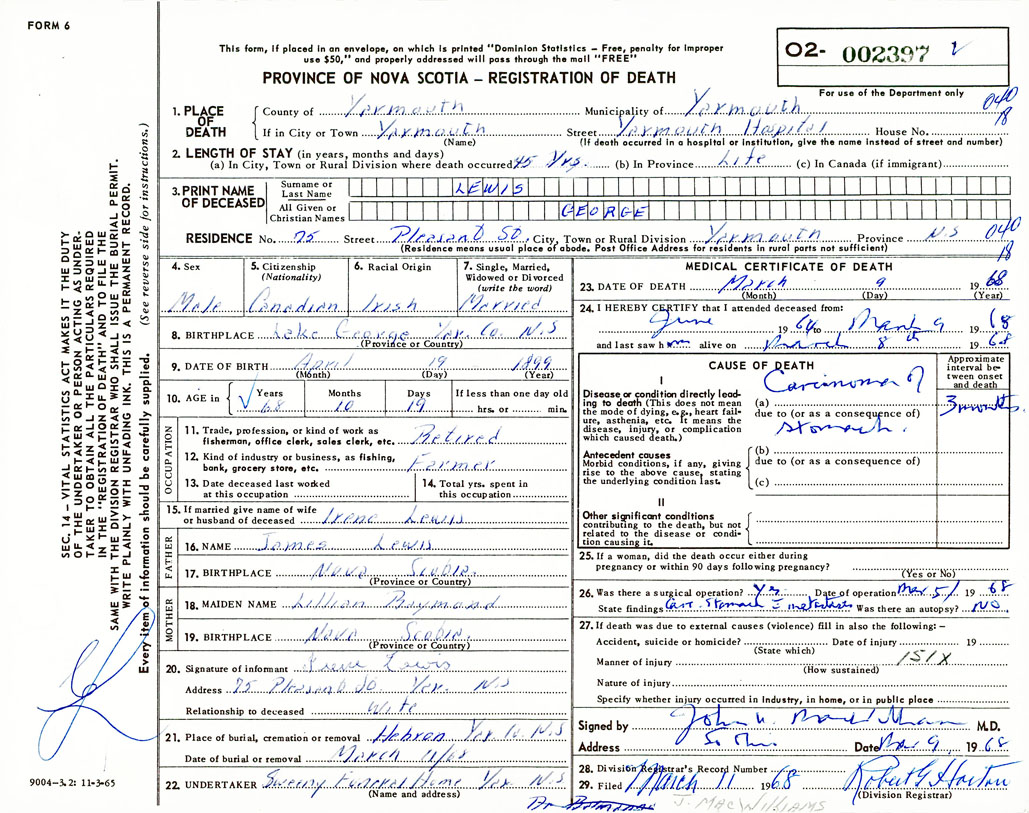 FORM 6
This form, if placed in an envelope, on which is printed "Dominion Statistics – Free, penalty for improper
use $50," and properly addressed will pass through the mail "FREE"
PROVINCE OF NOVA SCOTIA – REGISTRATION OF DEATH
O2- 002397
For use of the Department only
040
18
1. PLACE OF DEATH
County of Yarmouth Municipality of Yarmouth
If in City or Town Yarmouth Street Yarmouth Hospital House No.
(Name) (If death occurred in a hospital or institution, give the name instead of street and number)
2. LENGTH OF STAY (in years, months and days)
(a) In City, Town or Rural Division where death occurred 45 Yrs. (b) In Province Life (c) In Canada (if immigrant)
3. PRINT NAME OF DECEASED
Surname or Last Name LEWIS
All Given or Christian Names GEORGE
RESIDENCE No. 75 Street Pleasant St. City, Town or Rural Division Yarmouth Province N S 040
18
(Residence means usual place of abode. Post Office Address for residents in rural parts not sufficient)
4. Sex
Male
5. Citizenship
(Nationality)
Canadian
6. Racial Origin
Irish
7. Single, Married,
Widowed or Divorced
(write the word)
Married
8. BIRTHPLACE Lake George Yar. Co. N.S
(Province or Country)
9. DATE OF BIRTH April 19 1899
(Month) (Day) (Year)
10. AGE in Years Months Days If less than one day old
68 10 19 hrs. or min.
OCCUPATION
11. Trade, profession, or kind of work as
fisherman, office clerk, sales clerk, etc. Retired
12. Kind of industry or business, as fishing,
bank, grocery store, etc. Farmer
13. Date deceased last worked
at this occupation
14. Total yrs. spent in
this occupation
15. If married give name of wife
or husband of deceased Irene Lewis
FATHER
16. NAME James Lewis
17. BIRTHPLACE Nova Scotia
(Province or Country)
MOTHER
18. MAIDEN NAME Lillian Raymond
19. BIRTHPLACE Nova Scotia
(Province or Country)
20. Signature of informant Irene Lewis
Address 75 Pleasant St. Yar. N.S
Relationship to deceased Wife
21. Place of burial, cremation or removal Hebron Yar Co. N.S
Date of burial or removal March 11/68
22. UNDERTAKER Sweeny Funeral Home Yar N.S
(Name and address)
MEDICAL CERTIFICATE OF DEATH
23. DATE OF DEATH March 9 1968
(Month) (Day) (Year)
24. I HEREBY CERTIFY that I attended deceased from:
June 1964 to March 9 1968
and last saw him alive on March 8th 1968
CAUSE OF DEATH
Approximate
interval be-
tween onset
and death
I
Disease or condition directly lead-
ing to death (This does not mean
the mode of dying, e.g., heart fail-
ure, asthenia, etc. It means the
disease, injury, or complication
which caused death.)
Carcinoma of
(a)
due to (or as a consequence of)
stomach.
3 months.
Antecedent causes
Morbid conditions, if any, giving
rise to the above cause, stating
the underlying condition last.
(b)
due to (or as a consequence of)
(c)
II
Other significant conditions
contributing to the death, but not
related to the disease or condi-
tion causing it.
25. If a woman, did the death occur either during
pregnancy or within 90 days following pregnancy?
(Yes or No)
26. Was there a surgical operation? Yes Date of operation Mar. 5/ 1968
State findings Carc. Stomach metastases Was there an autopsy? NO
27. If death was due to external causes (violence) fill in also the following: –
Accident, suicide or homicide? Date of injury 19
(State which)
Manner of injury 151X
(How sustained)
Nature of injury
Specify whether injury occurred in industry, in home, or in public place
Signed by John M.D.
Address Date Mar 9, 1968
28. Division Registrar's Record Number
29. Filed March 11 1968 Robert G Horton
(Division Registrar)
J. MACWILLIAMS
SEC. 14 – VITAL STATISTICS ACT MAKES IT THE DUTY
OF THE UNDERTAKER OR PERSON ACTING AS UNDER-
TAKER TO OBTAIN ALL THE PARTICULARS REQUIRED
IN THE "REGISTRATION OF DEATH" AND TO FILE THE
SAME WITH THE DIVISION REGISTRAR WHO SHALL ISSUE THE BURIAL PERMIT.
WRITE PLAINLY WITH UNFADING INK. THIS IS A PERMANENT RECORD.
Every item of information should be carefully supplied. (See reverse side for instructions.)
9004-3.2: 11-3-65